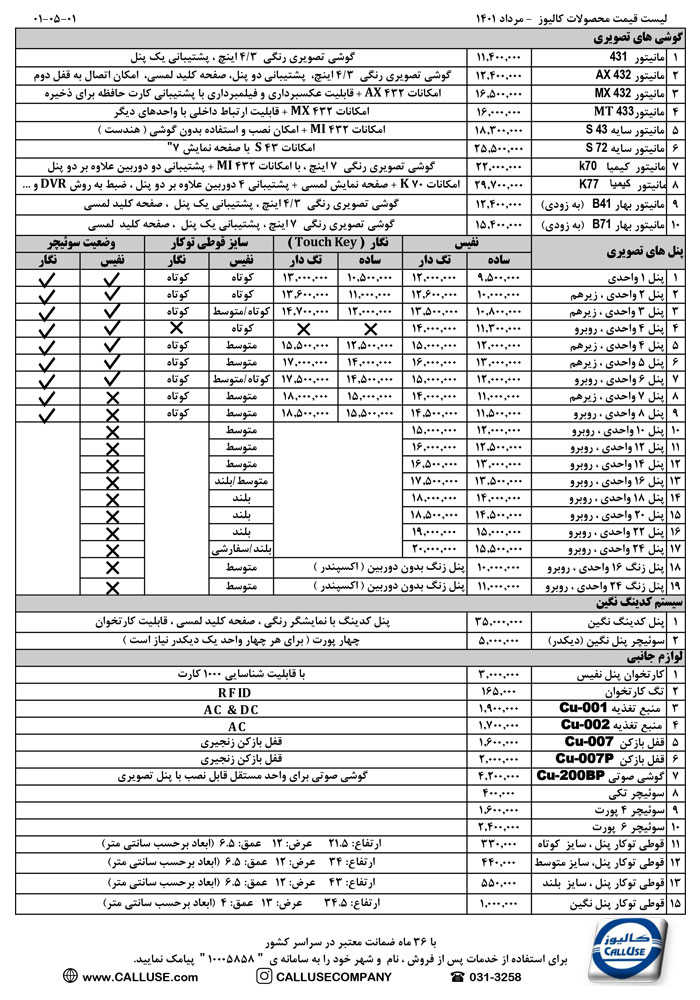 لیست قیمت محصولات کالیوز - مرداد ۱۴۰۱ ۰۱-۰۵-۰۱
گوشی های تصویری
۱ مانیتور 431 ۱۱,۴۰۰,۰۰۰ گوشی تصویری رنگی ۴/۳ اینچ ، پشتیبانی یک پنل
۲ مانیتور AX 432 ۱۲,۴۰۰,۰۰۰ گوشی تصویری رنگی ۴/۳ اینچ، پشتیبانی دو پنل، صفحه کلید لمسی، امکان اتصال به قفل دوم
۳ مانیتور MX 432 ۱۶,۵۰۰,۰۰۰ امکانات AX ۴۳۲ + قابلیت عکسبرداری و فیلمبرداری با پشتیبانی کارت حافظه برای ذخیره
۴ مانیتور MT 433 ۱۶,۰۰۰,۰۰۰ امکانات MX ۴۳۲ + قابلیت ارتباط داخلی با واحدهای دیگر
۵ مانیتور سایه S 43 ۱۸,۳۰۰,۰۰۰ امکانات MI ۴۳۲ + امکان نصب و استفاده بدون گوشی ( هندست )
۶ مانیتور سایه S 72 ۲۵,۵۰۰,۰۰۰ امکانات S ۴۳ با صفحه نمایش ۷"
۷ مانیتور کیمیا k70 ۲۲,۰۰۰,۰۰۰ گوشی تصویری رنگی ۷ اینچ ، با امکانات MI ۴۳۲ + پشتیبانی دو دوربین علاوه بر دو پنل
۸ مانیتور کیمیا K77 ۲۹,۷۰۰,۰۰۰ امکانات K ۷۰ + صفحه نمایش لمسی + پشتیبانی ۴ دوربین علاوه بر دو پنل ، ضبط به روش DVR و ...
۹ مانیتور بهار B41 (به زودی) ۱۲,۴۰۰,۰۰۰ گوشی تصویری رنگی ۴/۳ اینچ ، پشتیبانی یک پنل ، صفحه کلید لمسی
۱۰ مانیتور بهار B71 (به زودی) ۱۵,۴۰۰,۰۰۰ گوشی تصویری رنگی ۷ اینچ ، پشتیبانی یک پنل ، صفحه کلید لمسی
پنل های تصویری نفیس نگار ( Touch Key ) سایز قوطی توکار وضعیت سوئیچر
ساده تگ دار ساده تگ دار نفیس نگار نفیس نگار
۱ پنل ۱ واحدی ۹,۵۰۰,۰۰۰ ۱۲,۰۰۰,۰۰۰ ۱۰,۵۰۰,۰۰۰ ۱۳,۰۰۰,۰۰۰ کوتاه کوتاه ✓ ✓
۲ پنل ۲ واحدی ، زیرهم ۱۰,۰۰۰,۰۰۰ ۱۲,۶۰۰,۰۰۰ ۱۱,۰۰۰,۰۰۰ ۱۳,۶۰۰,۰۰۰ کوتاه کوتاه ✓ ✓
۳ پنل ۳ واحدی ، زیرهم ۱۰,۸۰۰,۰۰۰ ۱۳,۵۰۰,۰۰۰ ۱۲,۰۰۰,۰۰۰ ۱۴,۷۰۰,۰۰۰ کوتاه/متوسط کوتاه ✓ ✓
۴ پنل ۴ واحدی ، روبرو ۱۱,۳۰۰,۰۰۰ ۱۴,۰۰۰,۰۰۰ ✕ ✕ کوتاه ✕ ✓ ✓
۵ پنل ۴ واحدی ، زیرهم ۱۲,۰۰۰,۰۰۰ ۱۵,۰۰۰,۰۰۰ ۱۲,۵۰۰,۰۰۰ ۱۵,۵۰۰,۰۰۰ متوسط کوتاه ✓ ✓
۶ پنل ۵ واحدی ، زیرهم ۱۳,۰۰۰,۰۰۰ ۱۶,۰۰۰,۰۰۰ ۱۴,۰۰۰,۰۰۰ ۱۷,۰۰۰,۰۰۰ متوسط کوتاه ✓ ✓
۷ پنل ۶ واحدی ، روبرو ۱۲,۰۰۰,۰۰۰ ۱۵,۰۰۰,۰۰۰ ۱۴,۵۰۰,۰۰۰ ۱۷,۵۰۰,۰۰۰ کوتاه/متوسط کوتاه ✓ ✓
۸ پنل ۷ واحدی ، زیرهم ۱۱,۰۰۰,۰۰۰ ۱۴,۰۰۰,۰۰۰ ۱۵,۰۰۰,۰۰۰ ۱۸,۰۰۰,۰۰۰ متوسط کوتاه ✕ ✓
۹ پنل ۸ واحدی ، روبرو ۱۱,۵۰۰,۰۰۰ ۱۴,۵۰۰,۰۰۰ ۱۵,۵۰۰,۰۰۰ ۱۸,۵۰۰,۰۰۰ متوسط کوتاه ✕ ✓
۱۰ پنل ۱۰ واحدی ، روبرو ۱۲,۰۰۰,۰۰۰ ۱۵,۰۰۰,۰۰۰ متوسط ✕
۱۱ پنل ۱۲ واحدی ، روبرو ۱۲,۵۰۰,۰۰۰ ۱۶,۰۰۰,۰۰۰ متوسط ✕
۱۲ پنل ۱۴ واحدی ، روبرو ۱۳,۰۰۰,۰۰۰ ۱۶,۵۰۰,۰۰۰ متوسط ✕
۱۳ پنل ۱۶ واحدی ، روبرو ۱۳,۵۰۰,۰۰۰ ۱۷,۵۰۰,۰۰۰ متوسط/بلند ✕
۱۴ پنل ۱۸ واحدی ، روبرو ۱۴,۰۰۰,۰۰۰ ۱۸,۰۰۰,۰۰۰ بلند ✕
۱۵ پنل ۲۰ واحدی ، روبرو ۱۴,۵۰۰,۰۰۰ ۱۸,۵۰۰,۰۰۰ بلند ✕
۱۶ پنل ۲۲ واحدی ، روبرو ۱۵,۰۰۰,۰۰۰ ۱۹,۰۰۰,۰۰۰ بلند ✕
۱۷ پنل ۲۴ واحدی ، روبرو ۱۵,۵۰۰,۰۰۰ ۲۰,۰۰۰,۰۰۰ بلند/سفارشی ✕
۱۸ پنل زنگ ۱۶ واحدی ، روبرو ۱۰,۰۰۰,۰۰۰ پنل زنگ بدون دوربین ( اکسپندر ) متوسط ✕
۱۹ پنل زنگ ۲۴ واحدی ، روبرو ۱۱,۰۰۰,۰۰۰ پنل زنگ بدون دوربین ( اکسپندر ) متوسط ✕
سیستم کدینگ نگین
۱ پنل کدینگ نگین ۳۵,۰۰۰,۰۰۰ پنل کدینگ با نمایشگر رنگی ، صفحه کلید لمسی ، قابلیت کارتخوان
۲ سوئیچر پنل نگین (دیکدر) ۵,۰۰۰,۰۰۰ چهار پورت ( برای هر چهار واحد یک دیکدر نیاز است )
لوازم جانبی
۱ کارتخوان پنل نفیس ۳,۰۰۰,۰۰۰ با قابلیت شناسایی ۱۰۰۰ کارت
۲ تگ کارتخوان ۱۶۵,۰۰۰ RFID
۳ منبع تغذیه Cu-001 ۱,۹۰۰,۰۰۰ AC & DC
۴ منبع تغذیه Cu-002 ۱,۷۰۰,۰۰۰ AC
۵ قفل بازکن Cu-007 ۱,۶۰۰,۰۰۰ قفل بازکن زنجیری
۶ قفل بازکن Cu-007P ۲,۰۰۰,۰۰۰ قفل بازکن زنجیری
۷ گوشی صوتی Cu-200BP ۴,۲۰۰,۰۰۰ گوشی صوتی برای واحد مستقل قابل نصب با پنل تصویری
۸ سوئیچر تکی ۴۰۰,۰۰۰
۹ سوئیچر ۴ پورت ۱,۶۰۰,۰۰۰
۱۰ سوئیچر ۶ پورت ۲,۴۰۰,۰۰۰
۱۱ قوطی توکار پنل ، سایز کوتاه ۳۳۰,۰۰۰ ارتفاع: ۲۱.۵ عرض: ۱۲ عمق: ۶.۵ (ابعاد برحسب سانتی متر)
۱۲ قوطی توکار پنل، سایز متوسط ۴۴۰,۰۰۰ ارتفاع: ۳۴ عرض: ۱۲ عمق: ۶.۵ (ابعاد برحسب سانتی متر)
۱۳ قوطی توکار پنل ، سایز بلند ۵۵۰,۰۰۰ ارتفاع: ۴۳ عرض: ۱۲ عمق: ۶.۵ (ابعاد برحسب سانتی متر)
۱۵ قوطی توکار پنل نگین ۱,۰۰۰,۰۰۰ ارتفاع: ۳۴.۵ عرض: ۱۳ عمق: ۴ (ابعاد برحسب سانتی متر)
کالیوز
CALLUSE
با ۳۶ ماه ضمانت معتبر در سراسر کشور
برای استفاده از خدمات پس از فروش ، نام و شهر خود را به سامانه ی " ۱۰۰۰۵۸۵۸ " پیامک نمایید.
www.CALLUSE.com CALLUSECOMPANY 031-3258